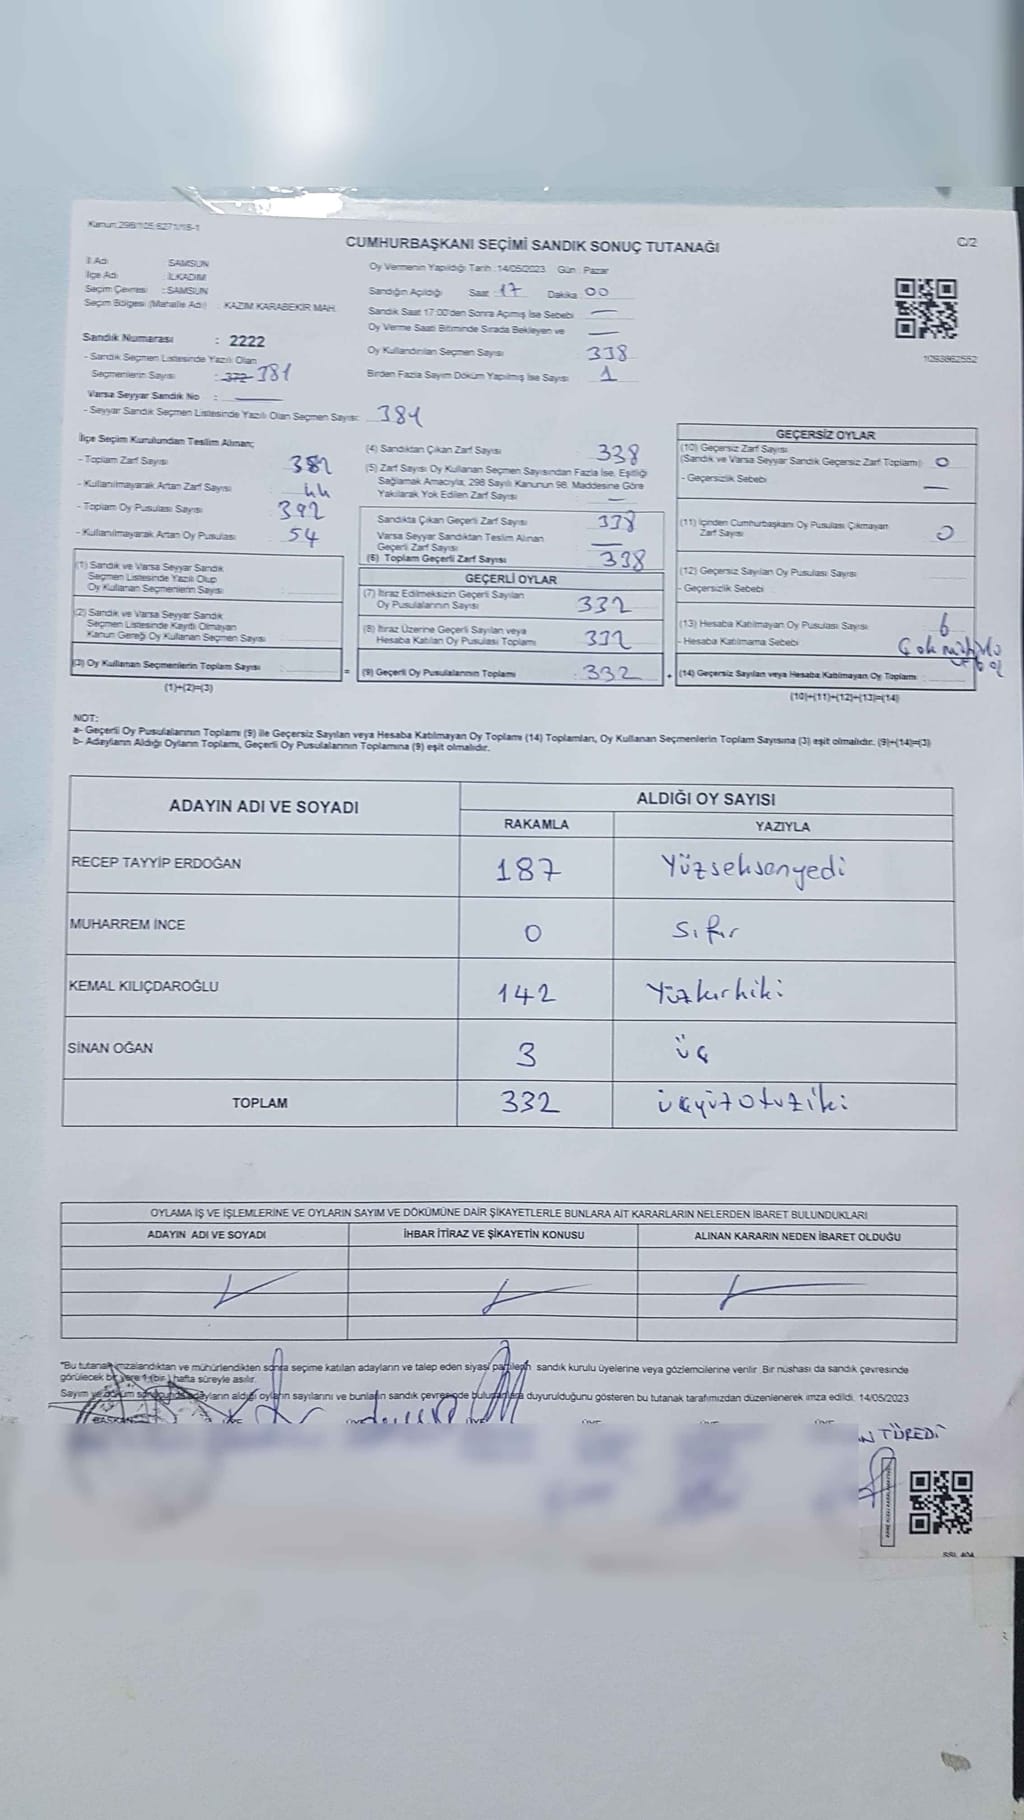 Kanun:298/105,6271/18-1
C/2
CUMHURBAŞKANI SEÇİMİ SANDIK SONUÇ TUTANAĞI
İl Adı : SAMSUN
İlçe Adı : İLKADIM
Seçim Çevresi : SAMSUN
Seçim Bölgesi (Mahalle Adı) : KAZIM KARABEKİR MAH.
Oy Vermenin Yapıldığı Tarih : 14/05/2023 Gün : Pazar
Sandığın Açıldığı Saat : 17 Dakika 00
Sandık Saat 17:00'den Sonra Açımış İse Sebebi —
Oy Verme Saati Bitiminde Sırada Bekleyen ve —
Oy Kullandırılan Seçmen Sayısı 338
Birden Fazla Sayım Döküm Yapılmış İse Sayısı 1
Sandık Numarası : 2222
- Sandık Seçmen Listesinde Yazılı Olan
Seçmenlerin Sayısı : 372 381
Varsa Seyyar Sandık No :
- Seyyar Sandık Seçmen Listesinde Yazılı Olan Seçmen Sayısı:
İlçe Seçim Kurulundan Teslim Alınan;
- Toplam Zarf Sayısı 382
- Kullanılmayarak Artan Zarf Sayısı 44
- Toplam Oy Pusulası Sayısı 392
- Kullanılmayarak Artan Oy Pusulası 54
(1) Sandık ve Varsa Seyyar Sandık
Seçmen Listesinde Yazılı Olup
Oy Kullanan Seçmenlerin Sayısı
(2) Sandık ve Varsa Seyyar Sandık
Seçmen Listesinde Kayıtlı Olmayan
Kanun Gereği Oy Kullanan Seçmen Sayısı
(3) Oy Kullanan Seçmenlerin Toplam Sayısı
(1)+(2)=(3)
=
(4) Sandıktan Çıkan Zarf Sayısı 338
(5) Zarf Sayısı Oy Kullanan Seçmen Sayısından Fazla İse, Eşitliği
Sağlamak Amacıyla, 298 Sayılı Kanunun 98. Maddesine Göre
Yakılarak Yok Edilen Zarf Sayısı —
Sandıkta Çıkan Geçerli Zarf Sayısı 338
Varsa Seyyar Sandıktan Teslim Alınan
Geçerli Zarf Sayısı —
(6) Toplam Geçerli Zarf Sayısı 338
GEÇERLİ OYLAR
(7) İtiraz Edilmeksizin Geçerli Sayılan
Oy Pusulalarının Sayısı 332
(8) İtiraz Üzerine Geçerli Sayılan veya
Hesaba Katılan Oy Pusulası Toplamı 332
(9) Geçerli Oy Pusulalarının Toplamı : 332
+
GEÇERSİZ OYLAR
(10) Geçersiz Zarf Sayısı
(Sandık ve Varsa Seyyar Sandık Geçersiz Zarf Toplamı) 0
- Geçersizlik Sebebi —
(11) İçinden Cumhurbaşkanı Oy Pusulası Çıkmayan
Zarf Sayısı 0
(12) Geçersiz Sayılan Oy Pusulası Sayısı
- Geçersizlik Sebebi
(13) Hesaba Katılmayan Oy Pusulası Sayısı 6
- Hesaba Katılmama Sebebi Çok
(14) Geçersiz Sayılan veya Hesaba Katılmayan Oy Toplamı
(10)+(11)+(12)+(13)=(14)
NOT:
a- Geçerli Oy Pusulalarının Toplamı (9) ile Geçersiz Sayılan veya Hesaba Katılmayan Oy Toplamı (14) Toplamları, Oy Kullanan Seçmenlerin Toplam Sayısına (3) eşit olmalıdır. (9)+(14)=(3)
b- Adayların Aldığı Oyların Toplamı, Geçerli Oy Pusulalarının Toplamına (9) eşit olmalıdır.
ADAYIN ADI VE SOYADI
ALDIĞI OY SAYISI
RAKAMLA YAZIYLA
RECEP TAYYİP ERDOĞAN 187 Yüzseksenyedi
MUHARREM İNCE 0 Sıfır
KEMAL KILIÇDAROĞLU 142 Yüzkırkiki
SİNAN OĞAN 3 üç
TOPLAM 332 üçyüzotuziki
OYLAMA İŞ VE İŞLEMLERİNE VE OYLARIN SAYIM VE DÖKÜMÜNE DAİR ŞİKAYETLERLE BUNLARA AİT KARARLARIN NELERDEN İBARET BULUNDUKLARI
ADAYIN ADI VE SOYADI İHBAR İTİRAZ VE ŞİKAYETİN KONUSU ALINAN KARARIN NEDEN İBARET OLDUĞU
*Bu tutanak imzalandıktan ve mühürlendikten sonra seçime katılan adayların ve talep eden siyasi partilerin sandık kurulu üyelerine veya gözlemcilerine verilir. Bir nüshası da sandık çevresinde
görülecek bir yere 1 (bir) hafta süreyle asılır.
Sayım ve döküm sonucunda adayların aldığı oyların sayılarını ve bunların sandık çevresinde bulunanlara duyurulduğunu gösteren bu tutanak tarafımızdan düzenlenerek imza edildi. 14/05/2023
BAŞKAN
TÜREDİ